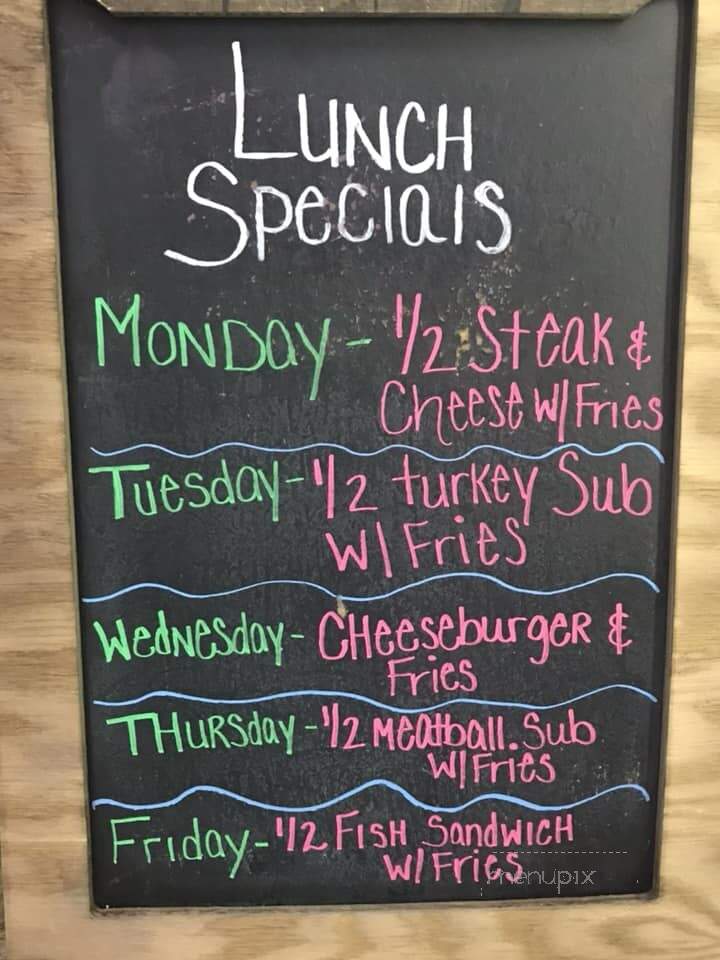 LUNCH
Specials
MONDAY - 1/2 Steak &
Cheese w/ Fries
Tuesday - 1/2 turkey Sub
w/ Fries
Wednesday - CHeeseburgeR &
Fries
THURSday - 1/2 Meatball. Sub
w/ Fries
Friday - 1/2 FISH SandWICH
w/ Fries
menupix